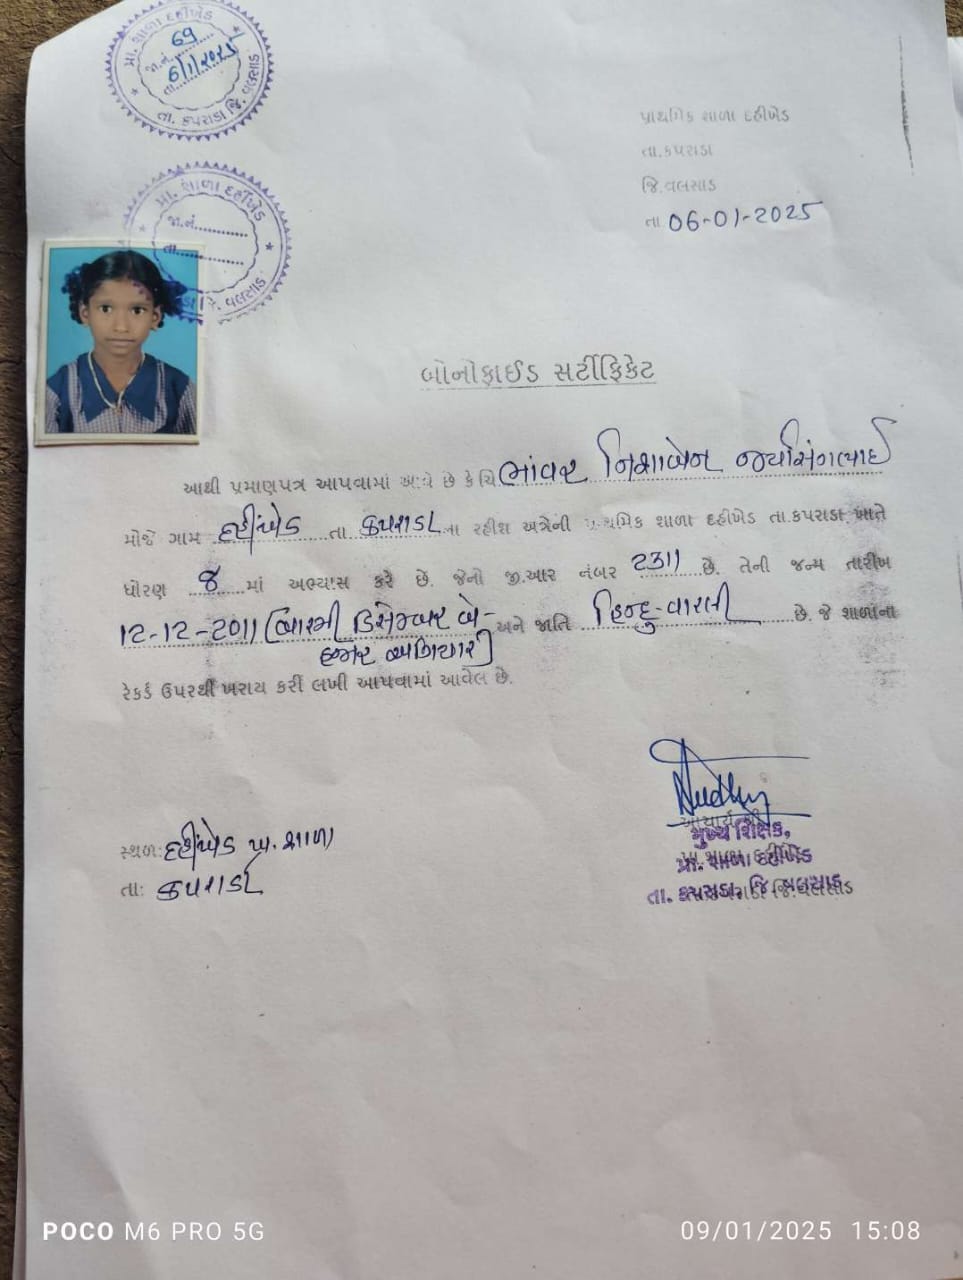 પ્રા. શાળા દહીખેડ
જા.નં. 69
તા. 6/1/2025
તા. કપરાડા જિ. વલસાડ
પ્રાથમિક શાળા દહીખેડ
તા.કપરાડા
જિ.વલસાડ
તા 06-01-2025
પ્રા. શાળા દહીખેડ
જા.નં.
તા.
જિ. વલસાડ
બોનોફાઈડ સર્ટીફિકેટ
આથી પ્રમાણપત્ર આપવામાં આવે છે કે ચિ ભાંવર નિશાબેન જયસિંગભાઈ
મોજે ગામ દહીંખેડ તા કપરાડા ના રહીશ અત્રેની પ્રાથમિક શાળા દહીખેડ તા.કપરાડા ખાતે
ધોરણ 8 માં અભ્યાસ કરે છે. જેનો જી.આર નંબર 2311 છે. તેની જન્મ તારીખ
12-12-2011 (બારમી ડિસેમ્બર બે- અને જાતિ હિન્દુ-વારલી છે. જે શાળાના
હજાર અગિયાર)
રેકર્ડ ઉપરથી ખરાય કરી લખી આપવામાં આવેલ છે.
આચાર્ય શ્રી
મુખ્ય શિક્ષક,
સ્થળ: દહીંખેડ પ્રા. શાળા
પ્રા. શાળા દહીંખેડ
તા: કપરાડા
તા. કપરાડા, જિ. વલસાડ
POCO M6 PRO 5G
09/01/2025 15:08